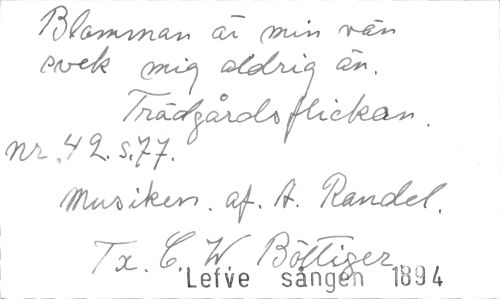 Blomman är min vän
svek mig aldrig än.
Trädgårdsflickan.
nr. 42. s. 77.
Musiken. af. A. Randel.
Tx. C. W Böttiger
Lefve sången 1894